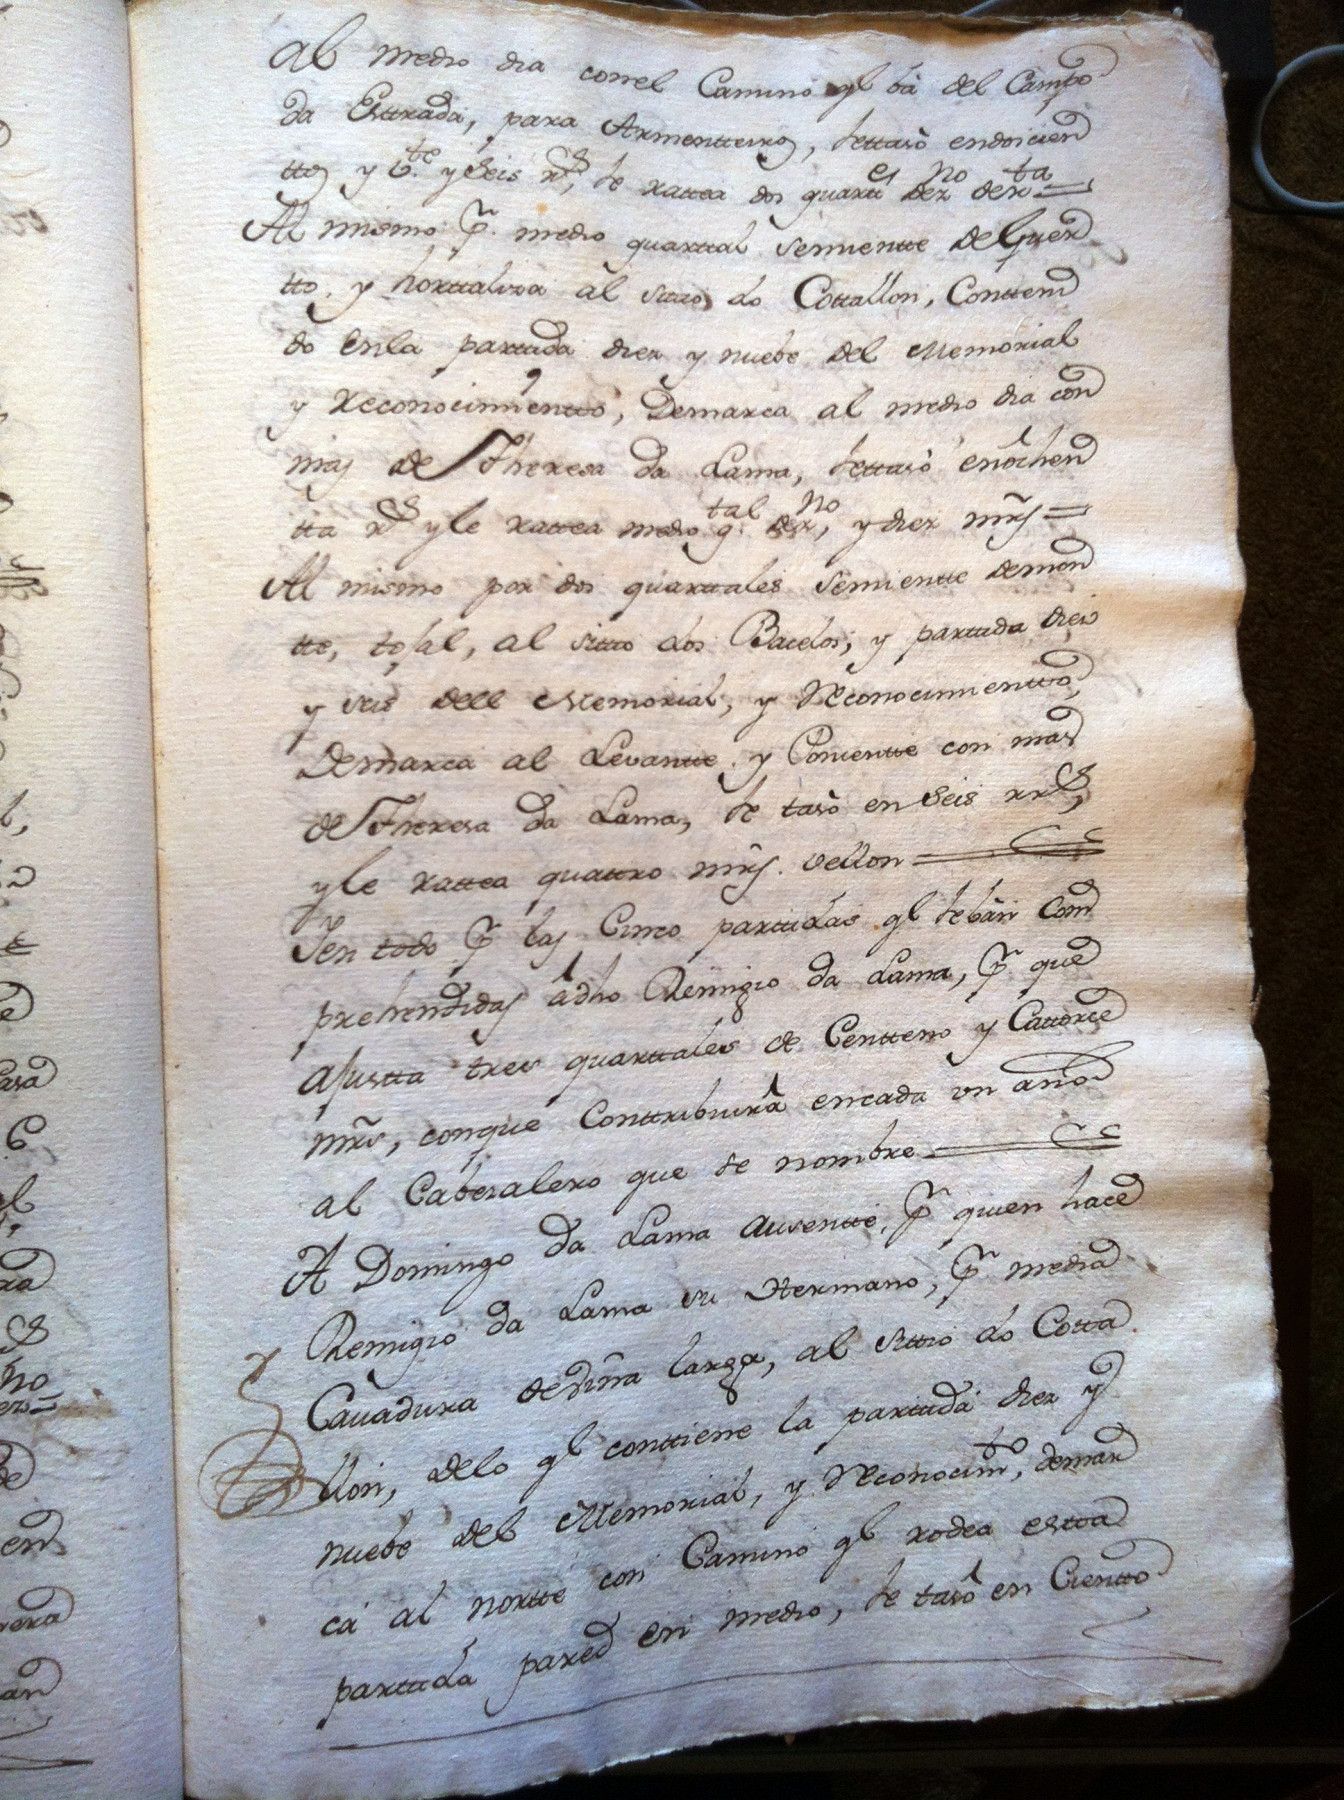 al medio dia conel Camino ql bâ del Campo
da Esttrada, para Armentteiro, settasò endocien
ttos y vte. y seis rs, se rattea dos quarttes dezno derta =
Al mismo pr. medio quarttal semientte deGuer
tto, y horttaliza al sitio do Cottallon, Conttení
do enla parttida diez y nuebe del Memorial
y Reconocimientto, Demarca al medio dia con
mas de Theresa da Lama, settasò enôchen
tta rs y le rattea medio qtal dezno, y diez mrs =
Al mismo por dos quarttales semientte demon
tte, tojal, al sittio dos Bacelos, y parttida diez
y seis dell Memorial, y Reconocimientto,
Demarca al Levantte, y Ponientte con mas
de Theresa da Lama, se tasò en seis rrs,
yle rattea quattro mrs. vellon =
Ien todo pr las Cinco parttidas ql seban Com
prehendidas âdho Remigio da Lama, pr que
ajustta tres quarttales de Centteno y Cattorce
mrs, conque Conttribuirâ encada vn año
al Cabezalero que se nombre =
A Domingo da Lama ausentte, pr quien hace
Remigio da Lama su Hermano, pr media
Cauadura deviña larga, al sittio do Cotta
llon, delo ql conttiene la parttida diez y
nuebe del Memorial, y Reconocimto, demar
ca al nortte con Camino ql rodea estta
parttida pared en medio, se tasò en Cientto